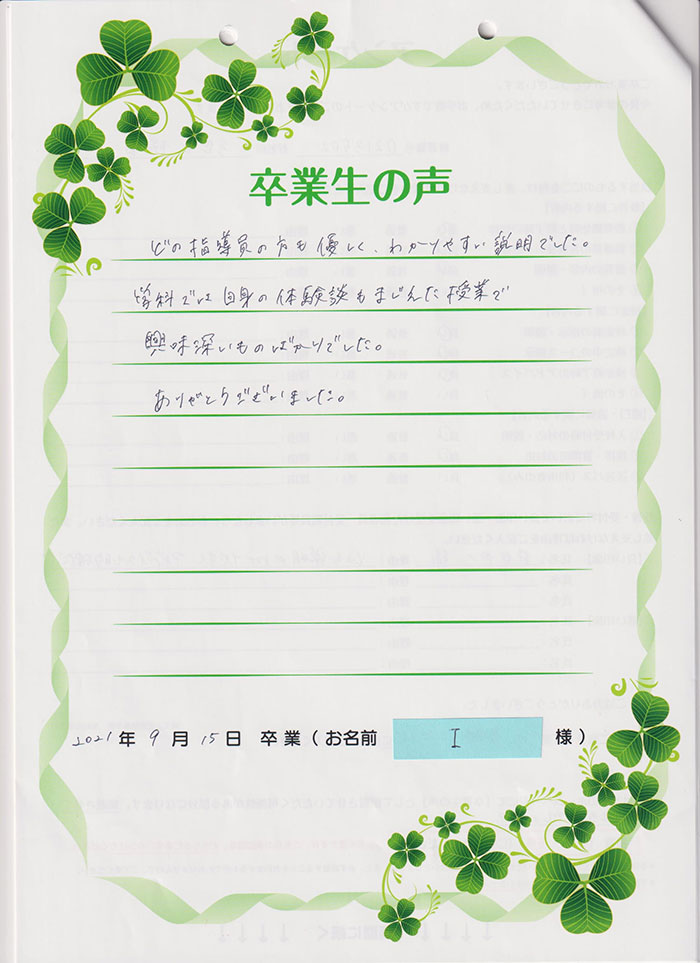 卒業生の声
どの指導員の方も優しく、わかりやすい説明でした。
学科では自身の体験談もまじえた授業で
興味深いものばかりでした。
ありがとうございました。
2021年 9月 15日 卒業(お名前 I 様)